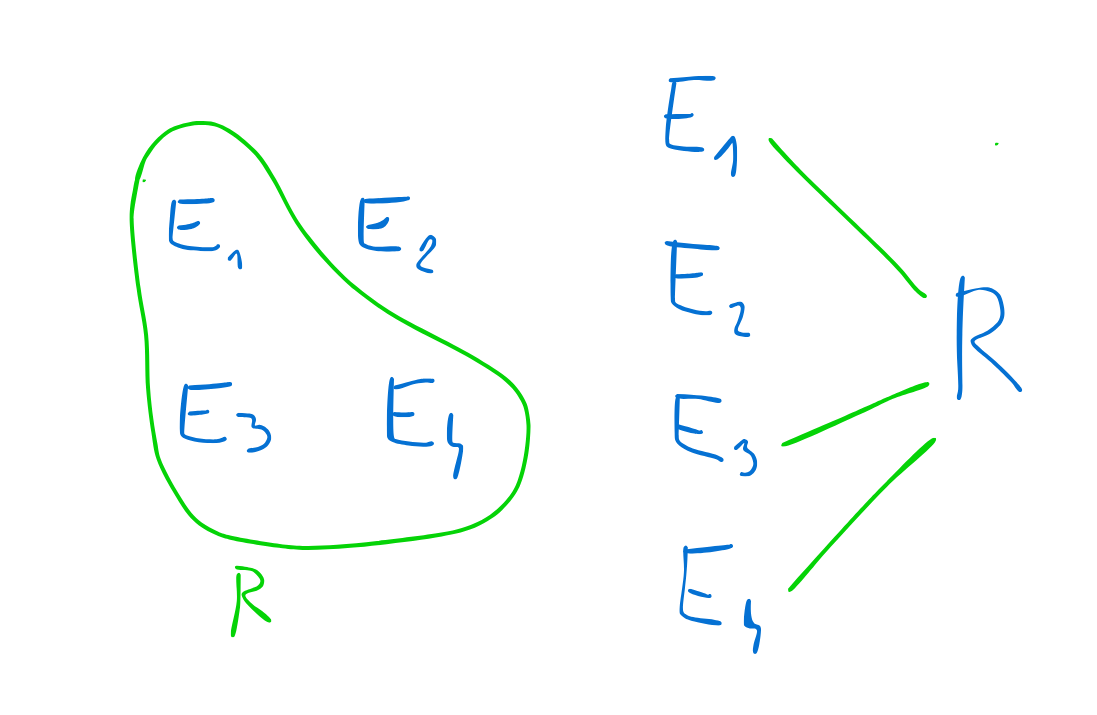 E₁ E₂
E₃ E₄
R
E₁
E₂
R
E₃
E₄